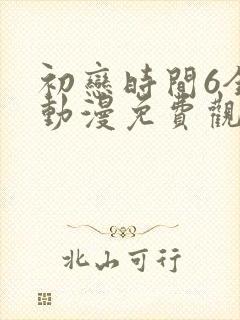 初戀時間6全
動漫免費觀
北山可行